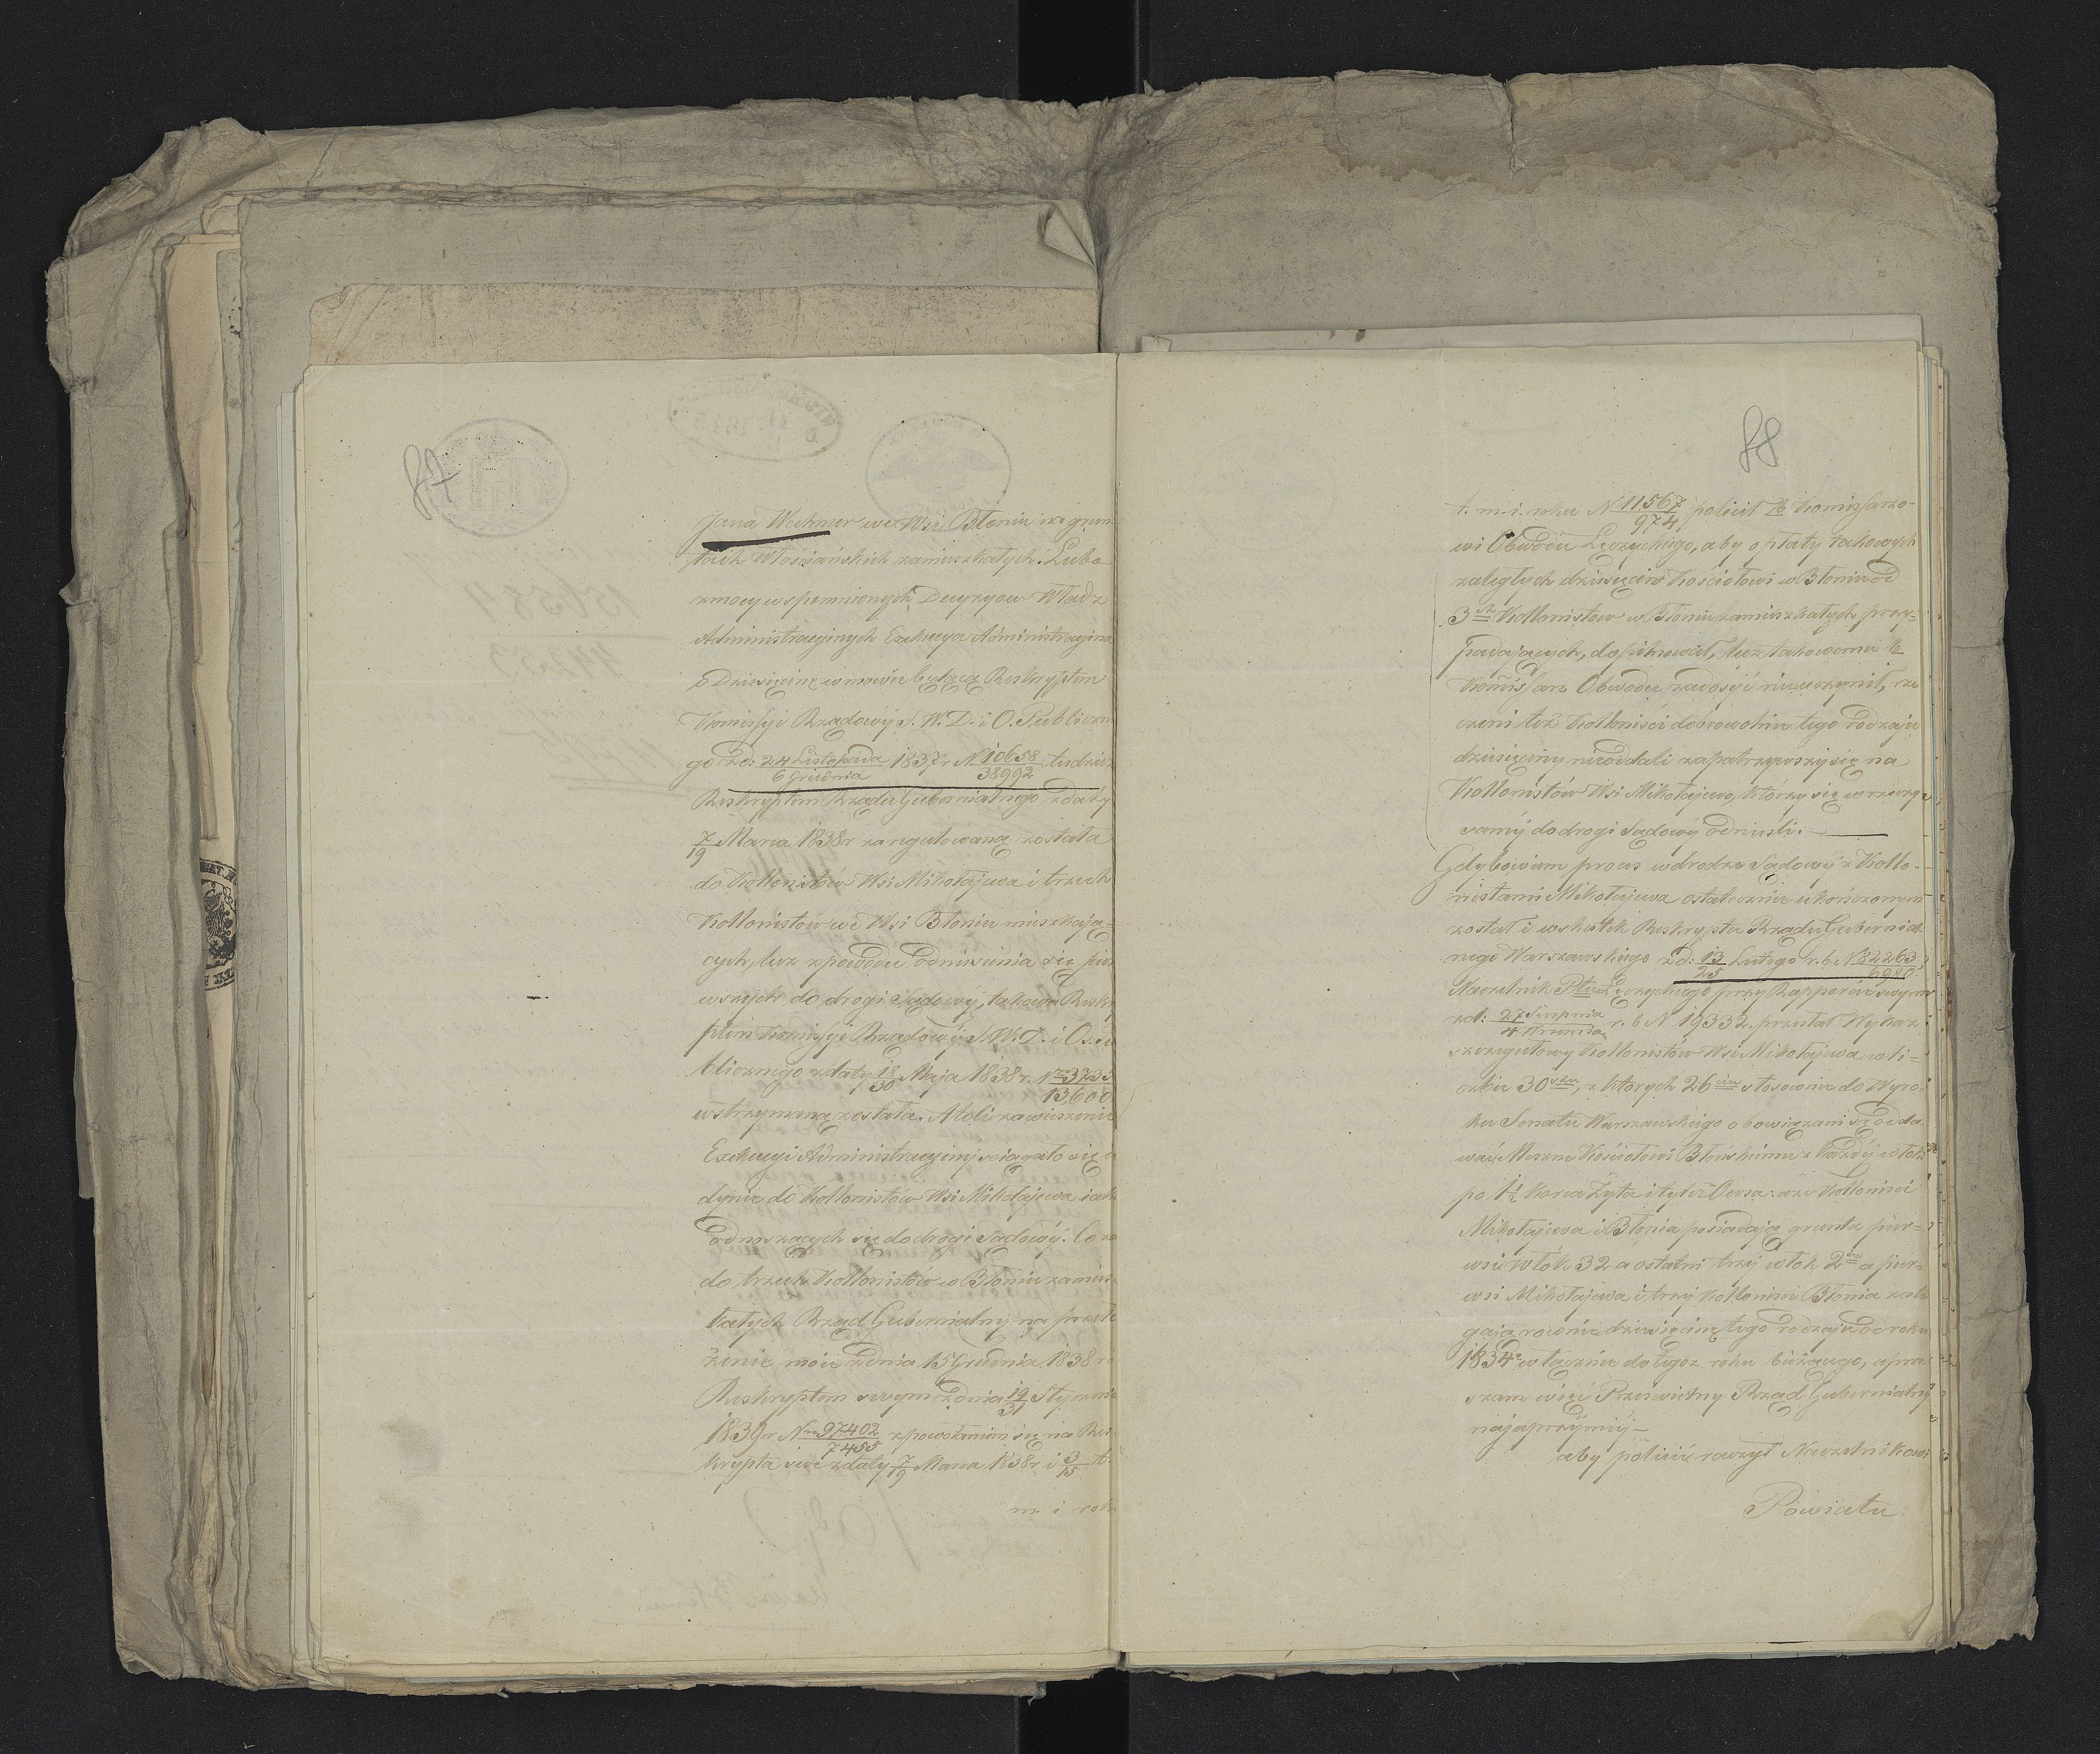 87
Jana Wechmer we Wsi Błoniu na grun
tach Włościańskich zamieszkałych. Lubo
zmocy wspomnionych Decyzyow Władz
Administracyjnych Exekucya Administracyjna
o Dziesięcinę w mowie będącą Reskryptem
Komissyi Rządowéj S. W. D. i O. Publiczne
go zd: 24 Listopada / 6 Grudnia 1837 r N. 10658 / 38992 tudzież
Reskryptem Rządu Gubernialnego zdaty
7/19 Marca 1838 r zaregulowaną została
do Kollonistów Wsi Mikołajewa i trzech
Kollonistów we Wsi Błoniu mieszkają=
cych, lecz z powodu odniesienia się pier
wszych do drogi Sądowéj, takowa Reskry
ptem Komissyi Rządowéj S. W. D. i O. Pu
blicznego zdaty 18/30 Maja 1838 r Nro 3733 / 13,600
wstrzymaną została. Ateli zawieszenie
Exekucyi Administracyjnéj sciągało się je
dynie do Kollonistów Wsi Mikołajewa jako
odnoszących się do drogi Sądowéj. Co za
do trzech Kollonistów w Błoniu zamiesz
kałych Rząd Gubernialny na przeło
żenie moie zdnia 15 Grudnia 1838 ro
Reskryptem swym zdnia 19/31 Stycznia
1839 r Nro 97402 / 7455 z powołaniem się na Res
krypta swe zdaty 7/19 Marca 1838 r i 3/15 t.
m. i roku
88
t. m. i. roku N 11567 / 974 polecił W Komissarzo-
wi Obwodu Łęczyckiego, aby opłaty takowych
zaległych dziesięcin Kościołowi w Błoniu od
3ch Kollonistow w Błoniu zamieszkałych przy=
padających, dopilnował, lecz takowemu W
Komissarz Obwodu zadosyć nieuczynił, rze
czeni też Kolloniści dobrowolnie tego rodzaju
dziesięciny nieoddali zapatrzywszy się na
Kollonistów Wsi Mikołajewa, którzy się w rzeczy
saméj do drogi Sądowéj odnieśli. —
Gdy bowiem proces w drodze Sądowéj z Kollo-
nistami Mikołajewa ostatecznie ukończonym
został i wskutek Reskryptu Rządu Gubernial
nego Warszawskiego zd: 13/25 Lutego r. b. N 82263 / 6980
Naczelnik Ptu Łęczyckiego przy Rapporcie swym
zd: 27 Sierpnia / 4 Września r. b N 19332 przesłał Wykaz
szczegułowy Kollonistów Wsi Mikołajewa w li-
czbie 30stu, z ktorych 26ciu stosownie do Wyro-
ku Senatu Warszawskiego obowiązani są odda
wać Meszne Kościołowi Błońskiemu z każdéj włoki
po 1 1/2 Korca Żyta i tyleż Owsa: a że Kolloniści
Mikołajewa i Błonia posiadają grunta pier=
wsi Włok 32 a ostatni trzéj włok 2ie a pier=
wsi Mikołajewa i trzéj Kolloniści Błonia zale
gają rownie dziesięcinę tego rodzaju od roku
1834o włącznie do tegoż roku bieżącego, upra=
szam więc Prześwietny Rząd Gubernialny
najuprzéjmiéj —
aby polecić raczył Naczelnikowi
Powiatu